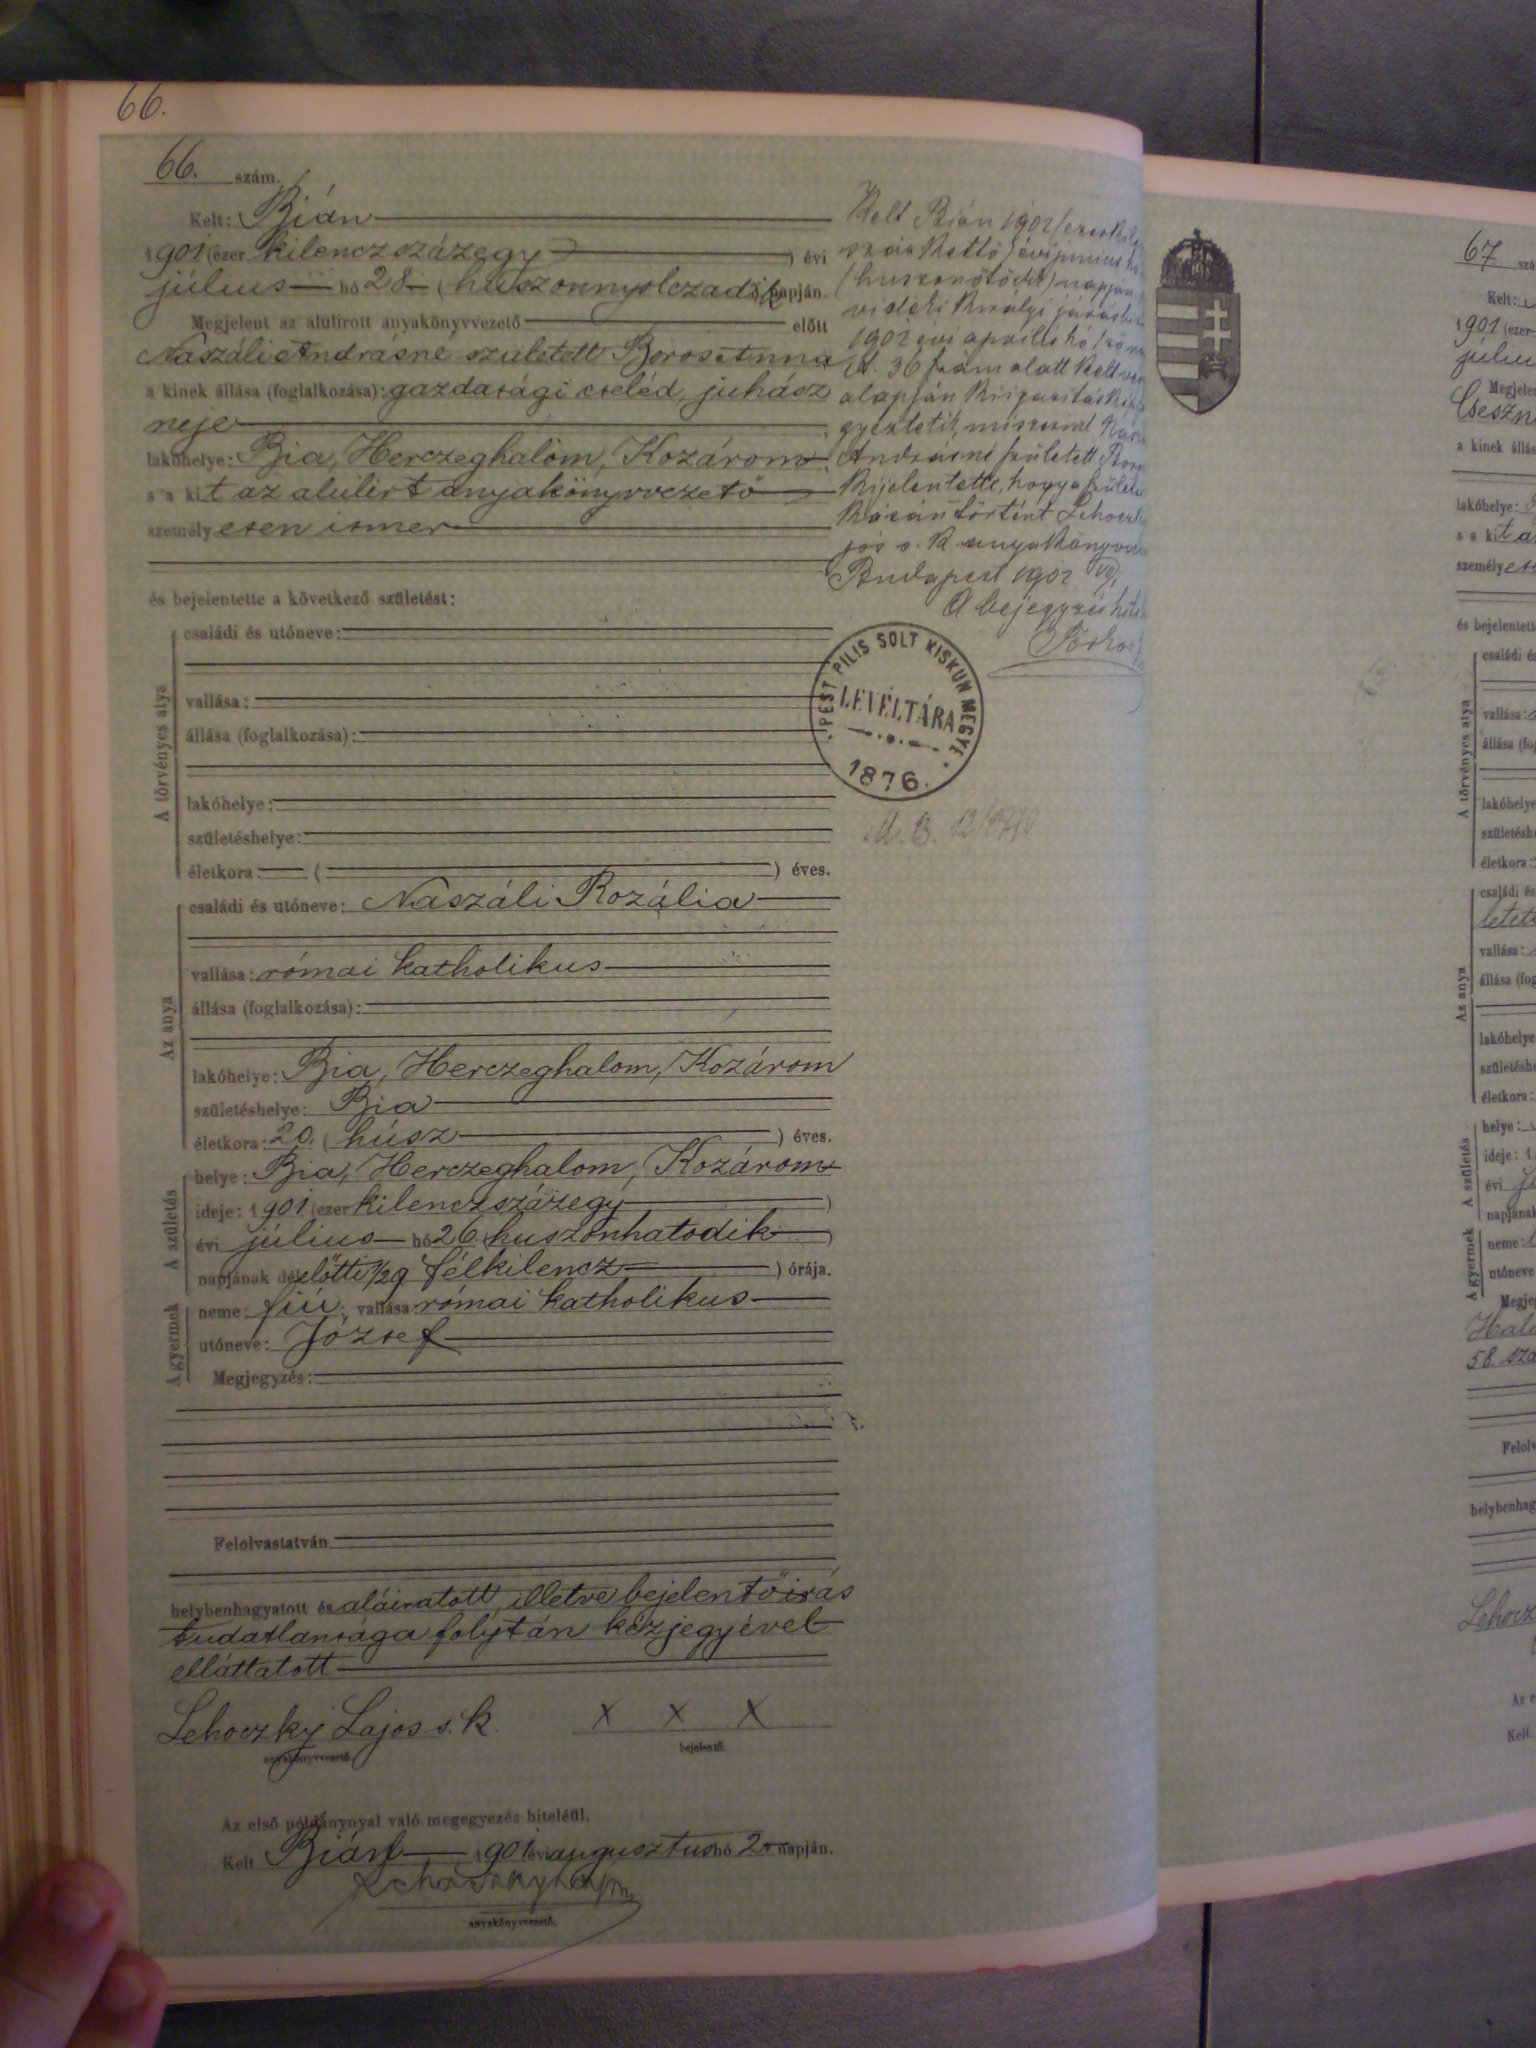 66.
66. szám.
Kelt: Bián
1901 (ezer kilenczszázegy) évi
július hó 28 (huszonnyolczadik) napján.
Megjelent az alulirott anyakönyvvezető előtt
Naszáli Andrásné született Boros Anna
a kinek állása (foglalkozása): gazdasági cseléd, juhász
neje
lakóhelye: Bia, Herczeghalom, Kozárom
s a kit az alulirt anyakönyvvezető
személyesen ismer
és bejelentette a következő születést:
A törvényes atya
családi és utóneve:
vallása:
állása (foglalkozása):
lakóhelye:
születéshelye:
életkora: ( ) éves.
Az anya
családi és utóneve: Naszáli Rozália
vallása: római katholikus
állása (foglalkozása):
lakóhelye: Bia, Herczeghalom, Kozárom
születéshelye: Bia
életkora: 20. (húsz) éves.
A születés
helye: Bia, Herczeghalom, Kozárom
ideje: 1901 (ezer kilenczszázegy)
évi július hó 26. (huszonhatodik)
napjának délelőtti 1/2 9 (félkilencz) órája.
A gyermek
neme: fiú; vallása: római katholikus
utóneve: József
Megjegyzés:
Felolvastatván
helybenhagyatott és aláiratott, illetve bejelentő irás
tudatlansága folytán kézjegyével
elláttatott
Lehoczky Lajos s. k. X X X
anyakönyvvezető. bejelentő.
Az első példánynyal való megegyezés hiteléül.
Kelt Bián 1901 évi augusztus hó 2 napján.
Lehoczky Lajos
anyakönyvvezető.
Kelt Bián 1902 (ezerkilen
százkettő) évi junius hó
(huszonötödik) napján
vidéki királyi járásbir
1902 évi április hó
36 szám alatt kelt
alapján kiigazításkép
gyeztetik, miszerint
Andrásné született Boro
kijelentette, hogy a
történt Lehoczk
jos s. k. anyakönyvv
Budapest 1902 VII
A bejegyzés hite
PEST PILIS SOLT KISKUN MEGYE
LEVÉLTÁRA
1876.
67 szá
Kelt:
1901 (ezer
júliu
Megjele
Cseszn
a kinek állás
lakóhelye:
s a kit a
személyes
és bejelentett
A törvényes atya
családi és
vallása:
állása (fo
lakóhelye
születésh
életkora:
Az anya
családi és
letet
vallása:
állása (fog
lakóhelye
születéshe
életkora:
A születés
helye:
ideje: 1
évi
napjának
A gyermek
neme:
utóneve
Megje
Hal
58. szá
Felolv
helybenhag
Lehocz
Az e
Kelt